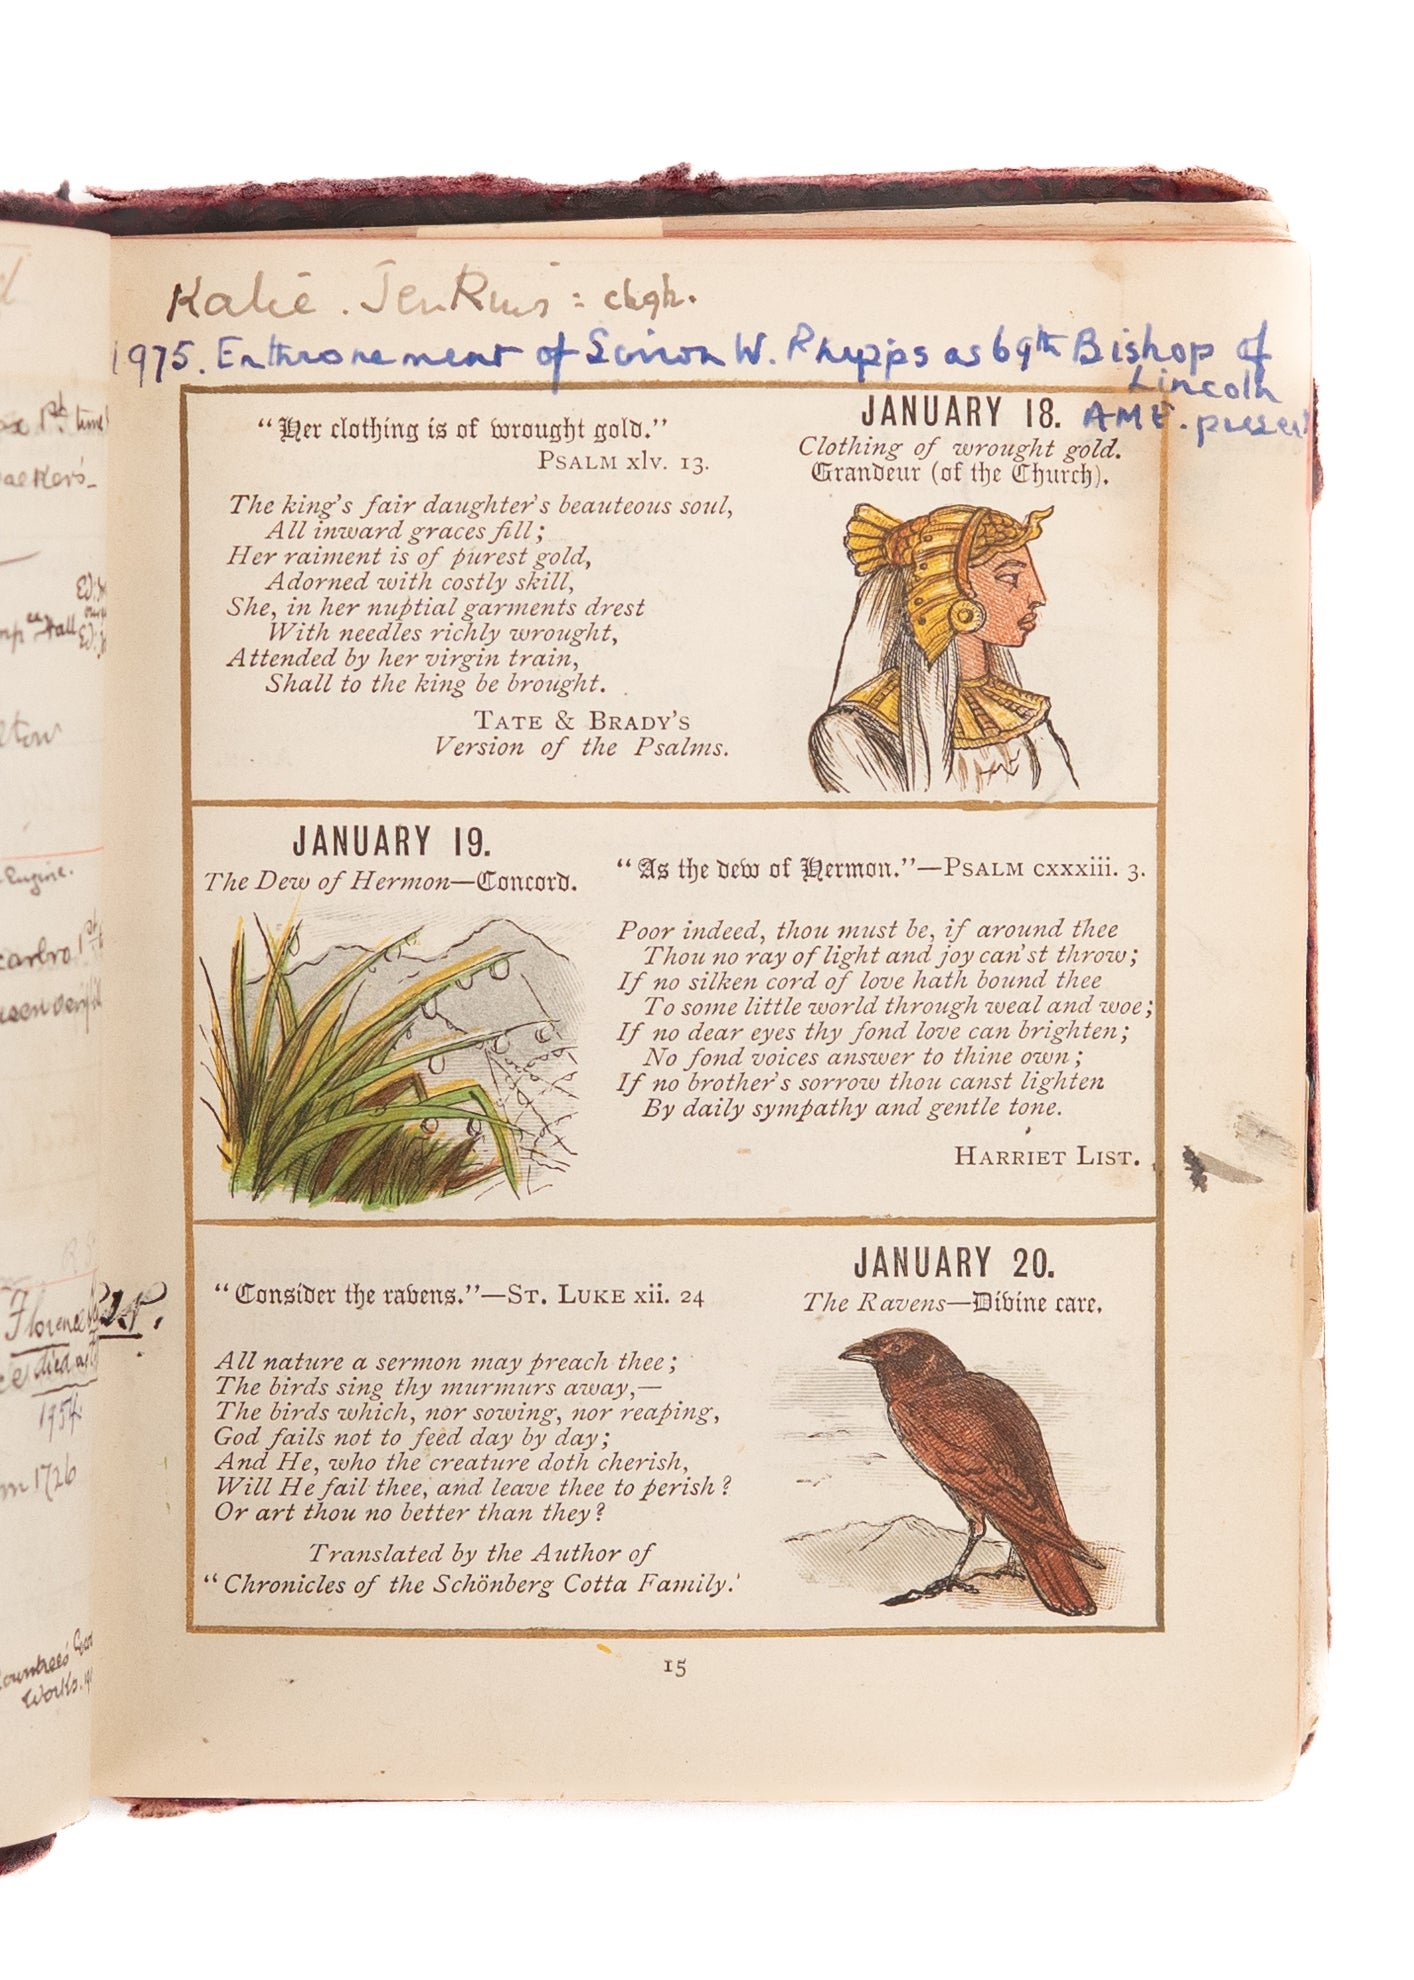 Katie. Jenkins
1975. Enthronement of Simon W. Phipps as 69th Bishop of
Lincoln
AME. present
"Her clothing is of wrought gold."
PSALM xlv. 13.
The king's fair daughter's beauteous soul,
All inward graces fill;
Her raiment is of purest gold,
Adorned with costly skill,
She, in her nuptial garments drest
With needles richly wrought,
Attended by her virgin train,
Shall to the king be brought.
TATE & BRADY'S
Version of the Psalms.
JANUARY 18.
Clothing of wrought gold.
Grandeur (of the Church).
JANUARY 19.
The Dew of Hermon—Concord.
"As the dew of Hermon."—PSALM cxxxiii. 3.
Poor indeed, thou must be, if around thee
Thou no ray of light and joy can'st throw;
If no silken cord of love hath bound thee
To some little world through weal and woe;
If no dear eyes thy fond love can brighten;
No fond voices answer to thine own;
If no brother's sorrow thou canst lighten
By daily sympathy and gentle tone.
HARRIET LIST.
"Consider the ravens."—ST. LUKE xii. 24
All nature a sermon may preach thee;
The birds sing thy murmurs away,—
The birds which, nor sowing, nor reaping,
God fails not to feed day by day;
And He, who the creature doth cherish,
Will He fail thee, and leave thee to perish?
Or art thou no better than they?
Translated by the Author of
"Chronicles of the Schönberg Cotta Family.'
JANUARY 20.
The Ravens—Divine care.
15
1st time
Hall
Engine.
Florence
died
1954
1726
Works.